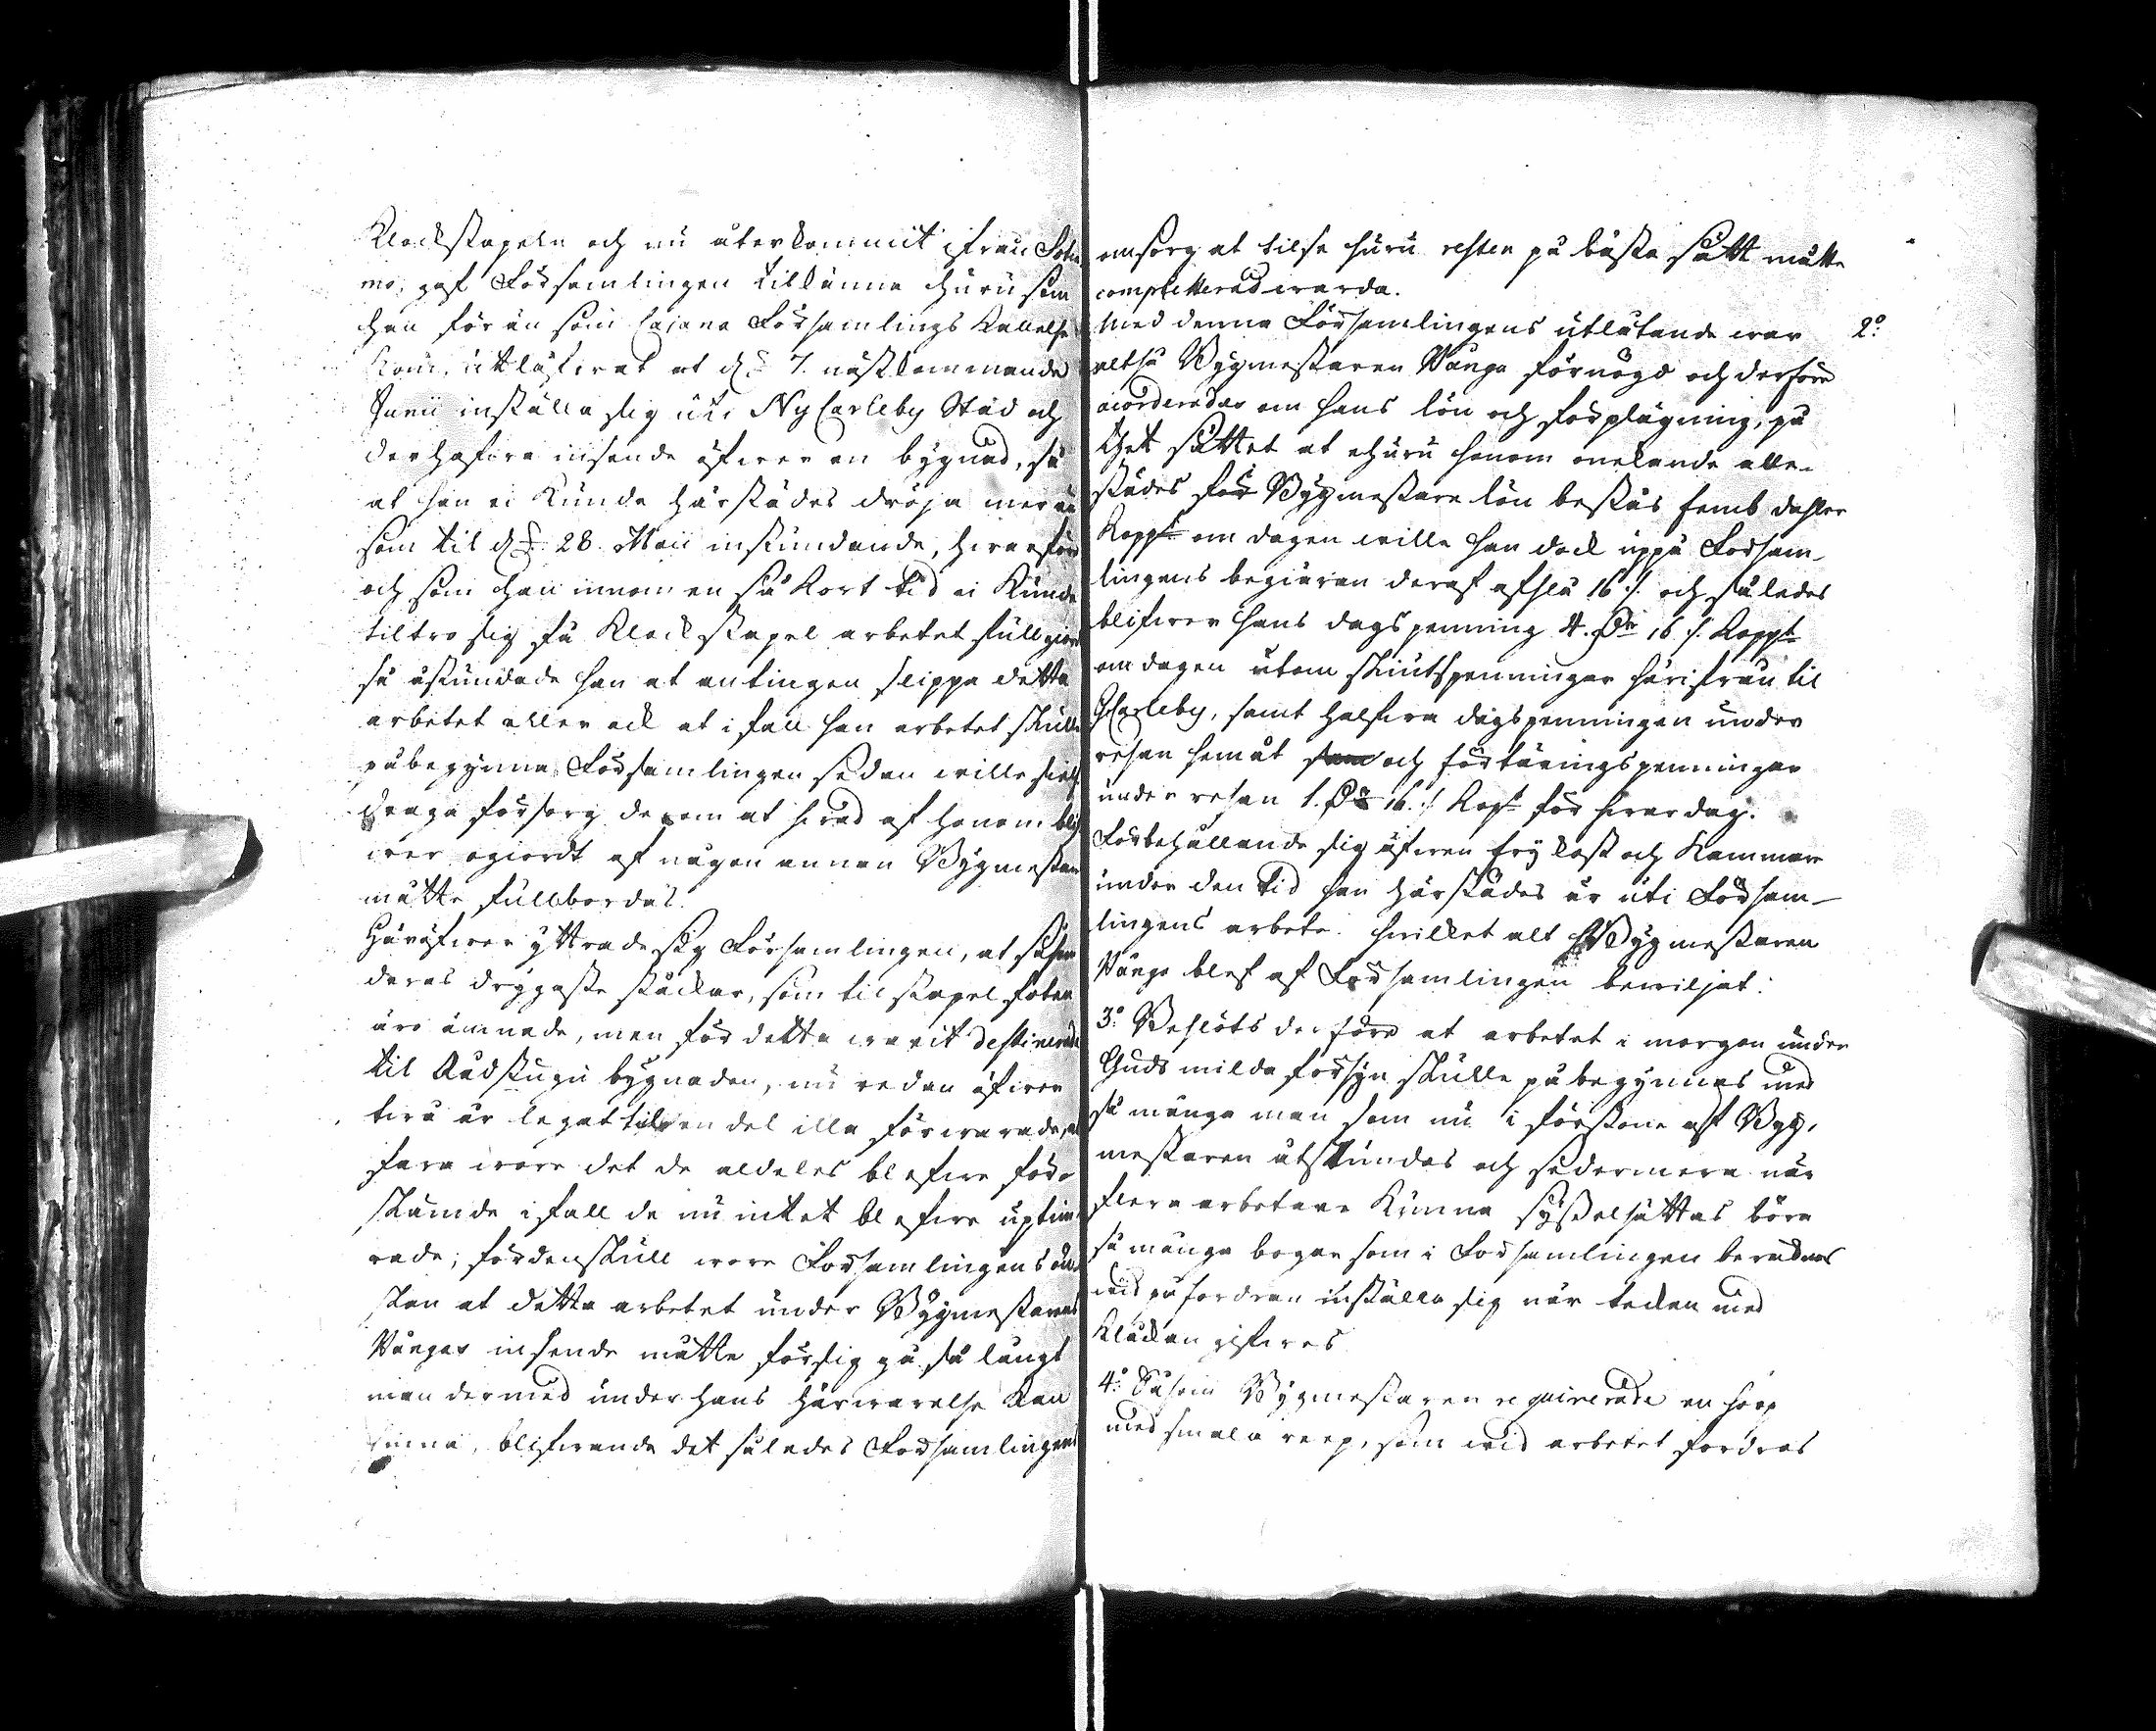 Klockstapeln och nu återkommit ifrån Sotka
mo, gaf Församlingen tilkänna huru som
han för än som Cajana Församlings Kallelse
kom, utläfwat at d: 7. nästkommande
Junii inställa sig uti NyCarleby Stad och
der hafwa inseende öfwer en bygnad, så
at han ei kunde härstädes dröja mer än
som til d: 28. Maii instundande, hwarföre
och som han innom en så kort tid ei kunde
tiltro sig få Klockstapel arbetet fullgiort
så åstundade han at antingen slippa detta
arbetet eller ock at ifall han arbetet skulle
påbegynna, Församlingen sedan wille sielf
draga försorg derom at hwad af honom blif
wer ogiordt af någon annan Bygmestare
måtte fullbordas.
Häröfwer yttrade sig Församlingen, at såsom
deras drygaste stockar, som til stapel foten
äro ämnade, men för detta warit destinerade
til Rådstugu bygnaden, nu redan öfwer
twå år legat til en del illa förwarade, at
fara wore det de aldeles blefwo för-
skämde ifall de nu intet blefwo uptim
rade; fördenskull wore Församlingens ön
skan at detta arbetet under Bygmestarens
Wånges inseende måtte försig gå så långt
man dermed under hans härwarelse kan
hinna, blifwande det således Församlingens
omsorg at tilse huru resten på bästa sätt måtte
completterad warda.
2:o Med denna Församlingens utlåtande war
altså Bygmestaren Wånge förnögd och derföre
accorderades om hans lön och förplägning, på
thet sättet at ehuru honom onekande alle-
städes för Bygmestare lön bestås femb daler
Kopp:t om dagen wille han dock uppå Försam-
lingens begiäran deraf afslå 16 :/. och således
blifwer hans dagspenning 4. D:r 16 :/. Kopp:t
om dagen utom skiutspenningar härifrån til
GCarleby, samt halfwa dagspenningen under
resan hemåt sam och förtäringspenningar
under resan 1. D:r 16. :/. Kop:t för hwar dag.
Förbehållande sig äfwen fry kost och Kammare
under den tid han härstädes är uti Församm-
lingens arbete. hwilket alt Bygmestaren
Wånge blef af Församlingen bewiljat.
3:o Beslöts derföre at arbetet i morgon under
Guds milda försyn skulle påbegynnas med
så många man som nu i förstone af Byg-
mestaren åstundas och sedermera när
flera arbetare kunna sysselsättas böra
så många bogar som i Församlingen beräknas
wid påfordran inställa sig när tecken med
Klockan gifwes
4:o Såsom Bygmestaren requirerade en hoop
med smala reep, som wid arbetet fordras